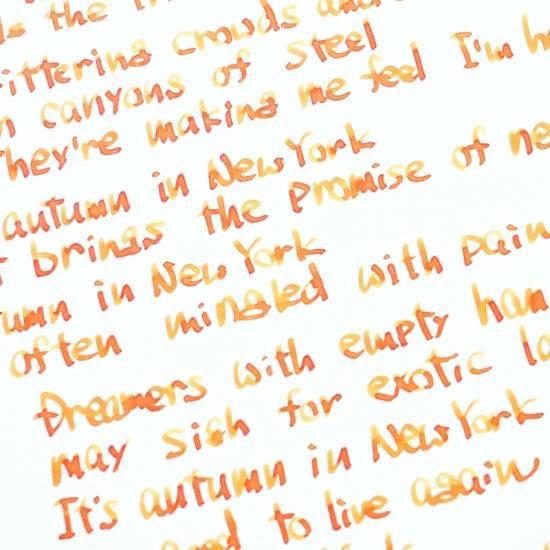 the
glittering crowds and
canyons of steel
They're making me feel I'm h
autumn in New York
brings the promise of ne
umn in New York
often mingled with pain
Dreamers with empty han
may sigh for exotic la
It's autumn in New York
good to live again